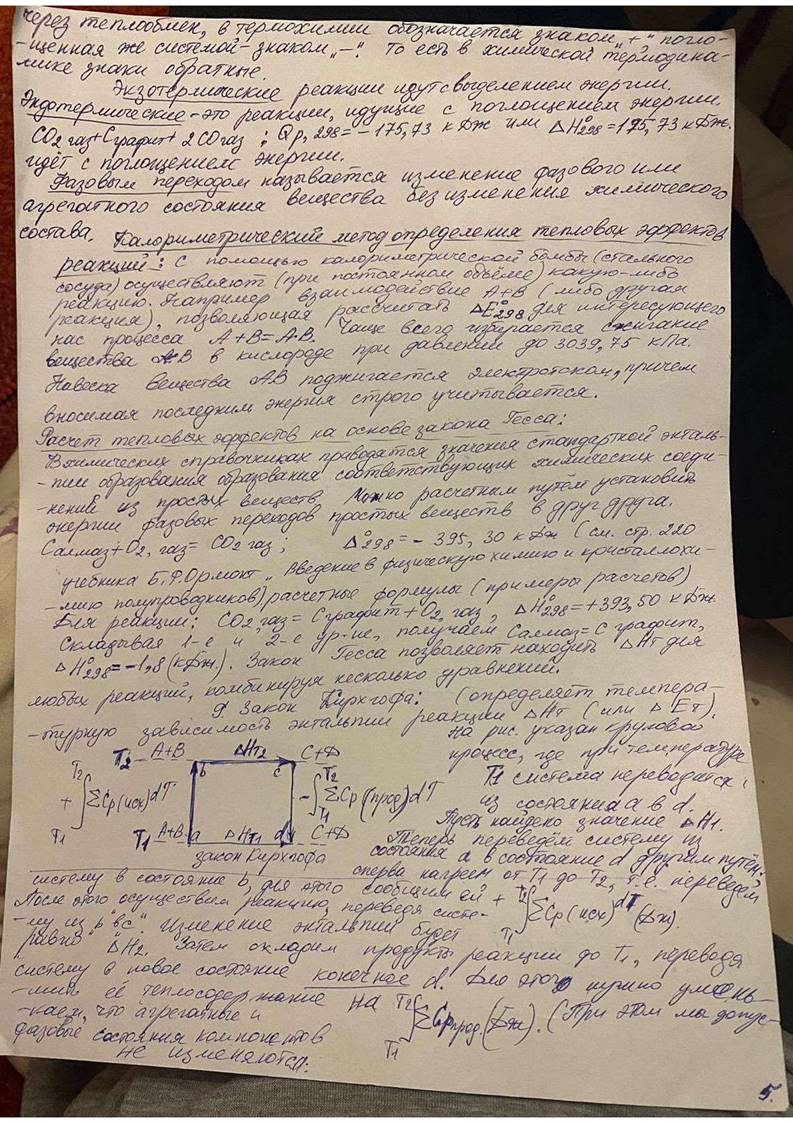 через теплообмен, в термохимии обозначается знаком „+" погло-
-щенная же системой - знаком „—". То есть в химической термодина-
мике знаки обратные.
Экзотермические реакции идут с выделением энергии.
Эндотермические - это реакции, идущие с поглощением энергии.
CO2 газ + Cграфит + 2CO газ ; Qp, 298 = - 175,73 кДж или ΔH°298 = 175,73 кДж.
идёт с поглощением энергии.
Фазовым переходом называется изменение фазового или
агрегатного состояния вещества без изменения химического
состава. Калориметрический метод определения тепловых эффектов
реакций: С помощью калориметрической бомбы (стального
сосуда) осуществляют (при постоянном объёме) какую-либо
реакцию. Например взаимодействие A+B (либо другая
реакция), позволяющая рассчитать ΔE°298 для интересующего
нас процесса A+B=A·B. Чаще всего избирается сжигание
вещества AB в кислороде при давлении до 3039,75 кПа.
Навеска вещества AB поджигается электротоком, причем
вносимая последним энергия строго учитывается.
Расчет тепловых эффектов на основе закона Гесса:
В химических справочниках приводятся значения стандартной энталь-
-пии образования образования соответствующих химических соеди-
-нений из простых веществ. Можно расчетным путем установить
энергии фазовых переходов простых веществ в друг друга.
Cалмаз + O2, газ = CO2 газ ; Δ°298 = - 395, 30 кДж (см. стр. 220
учебника Б.Ф. Ормонт „Введение в физическую химию и кристаллохи-
-мию полупроводников) расчетные формулы (примеры расчетов)
Для реакции: CO2, газ = Cграфит + O2, газ, ΔH°298 = +393,50 кДж
Складывая 1-е и 2-е ур-ие, получаем Cалмаз = C графит,
ΔH°298 = -1,8 (кДж.). Закон Гесса позволяет находить ΔHT для
любых реакций, комбинируя несколько уравнений.
Закон Кирхгофа: (определяет темпера-
-турную зависимость энтальпии реакции ΔHT (или ΔET).
На рис. указан круговой
процесс, где при температуре
T1 система переводится
из состояния a в d.
Пусть найдено значение ΔH1.
Теперь переведём систему из
состояния a в состояние d другим путём:
T2 A+B ΔHT2 C+D
b c
+ ∫T1T2 ΣCp(исх)dT
- ∫T1T2 ΣCp(прод)dT
T1 A+B a ΔHT1 d C+D
закон Кирхгофа
сперва нагреем от T1 до T2, т.е. переведём
систему в состояние b, для этого сообщим ей + ∫T1T2 ΣCp(исх)dT (Дж).
После этого осуществим реакцию, переведя систе-
-му из b "вc". Изменение энтальпии будет
равно ΔH2. Затем охладим продукты реакции до T1, переводя
систему в новое состояние конечное d. Для этого нужно умень-
-шить её теплосодержание на ∫T1T2 ΣCpпрод. (Дж). (При этом мы допус-
-каем, что агрегатные и
фазовые состояния компонентов
не изменяются.
5.